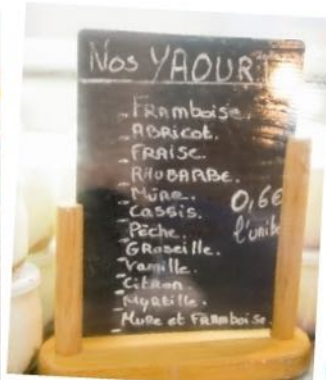 Nos YAOURT
- FRAMboise.
- ABRicot.
- FRAISE.
- RHUBARBE.
- Mûre.
- Cassis.
- Pêche.
- GRoseille.
- Vanille.
- Citron.
- Myrtille.
- Mure et FRAMboise.
0,6€
l'unité